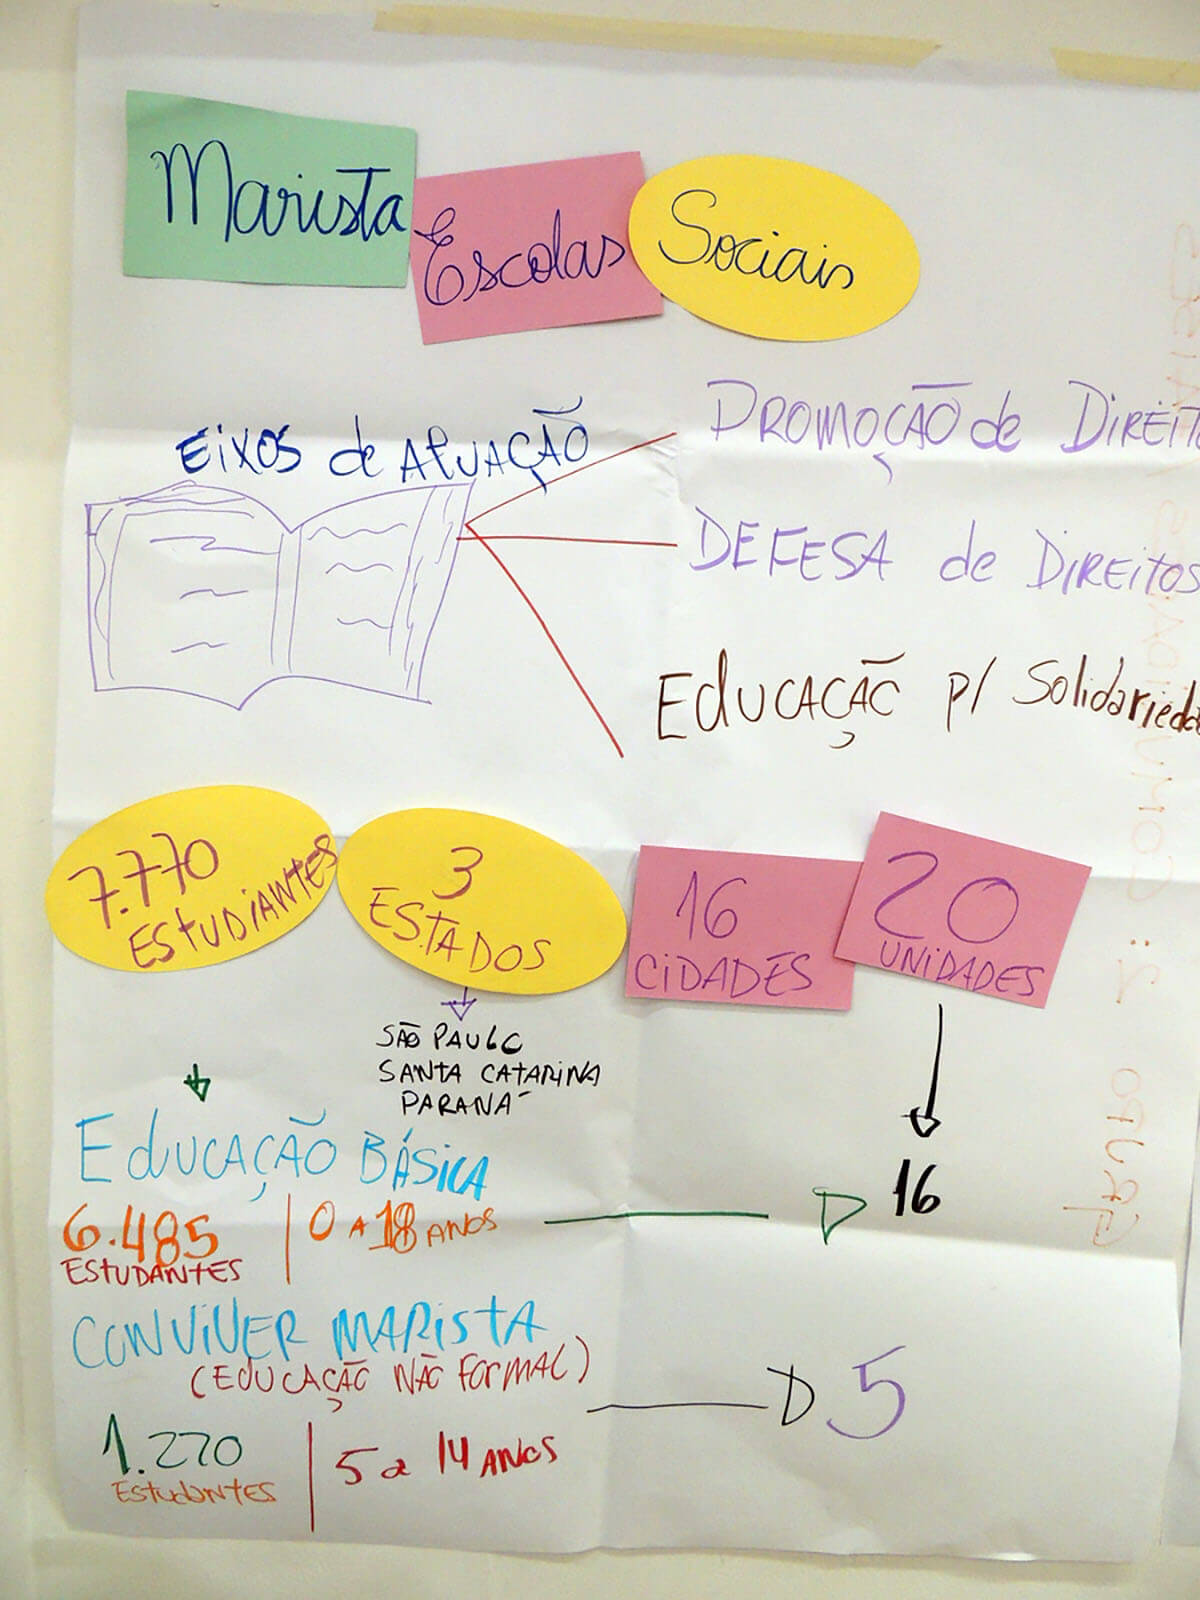 Marista Escolas Sociais
EIXOS de AtuAÇÃO
PROMOÇÃO de DIREIT
DEFESA de DIREITOS
EducAÇÃO p/ Solidarieda
7.770
ESTUDIANTES
3
ESTADOS
16
CIDADES
20
UNIDADES
SÃO PAULO
SANTA CATARINA
PARANÁ
EducAÇÃO BÁSICA
16
6.485
ESTUDANTES
0 A 18 ANOS
CONVIVER MARISTA
(EDUCAÇÃO NÃO FORMAL)
5
1.270
ESTUDANTES
5 a 14 ANOS